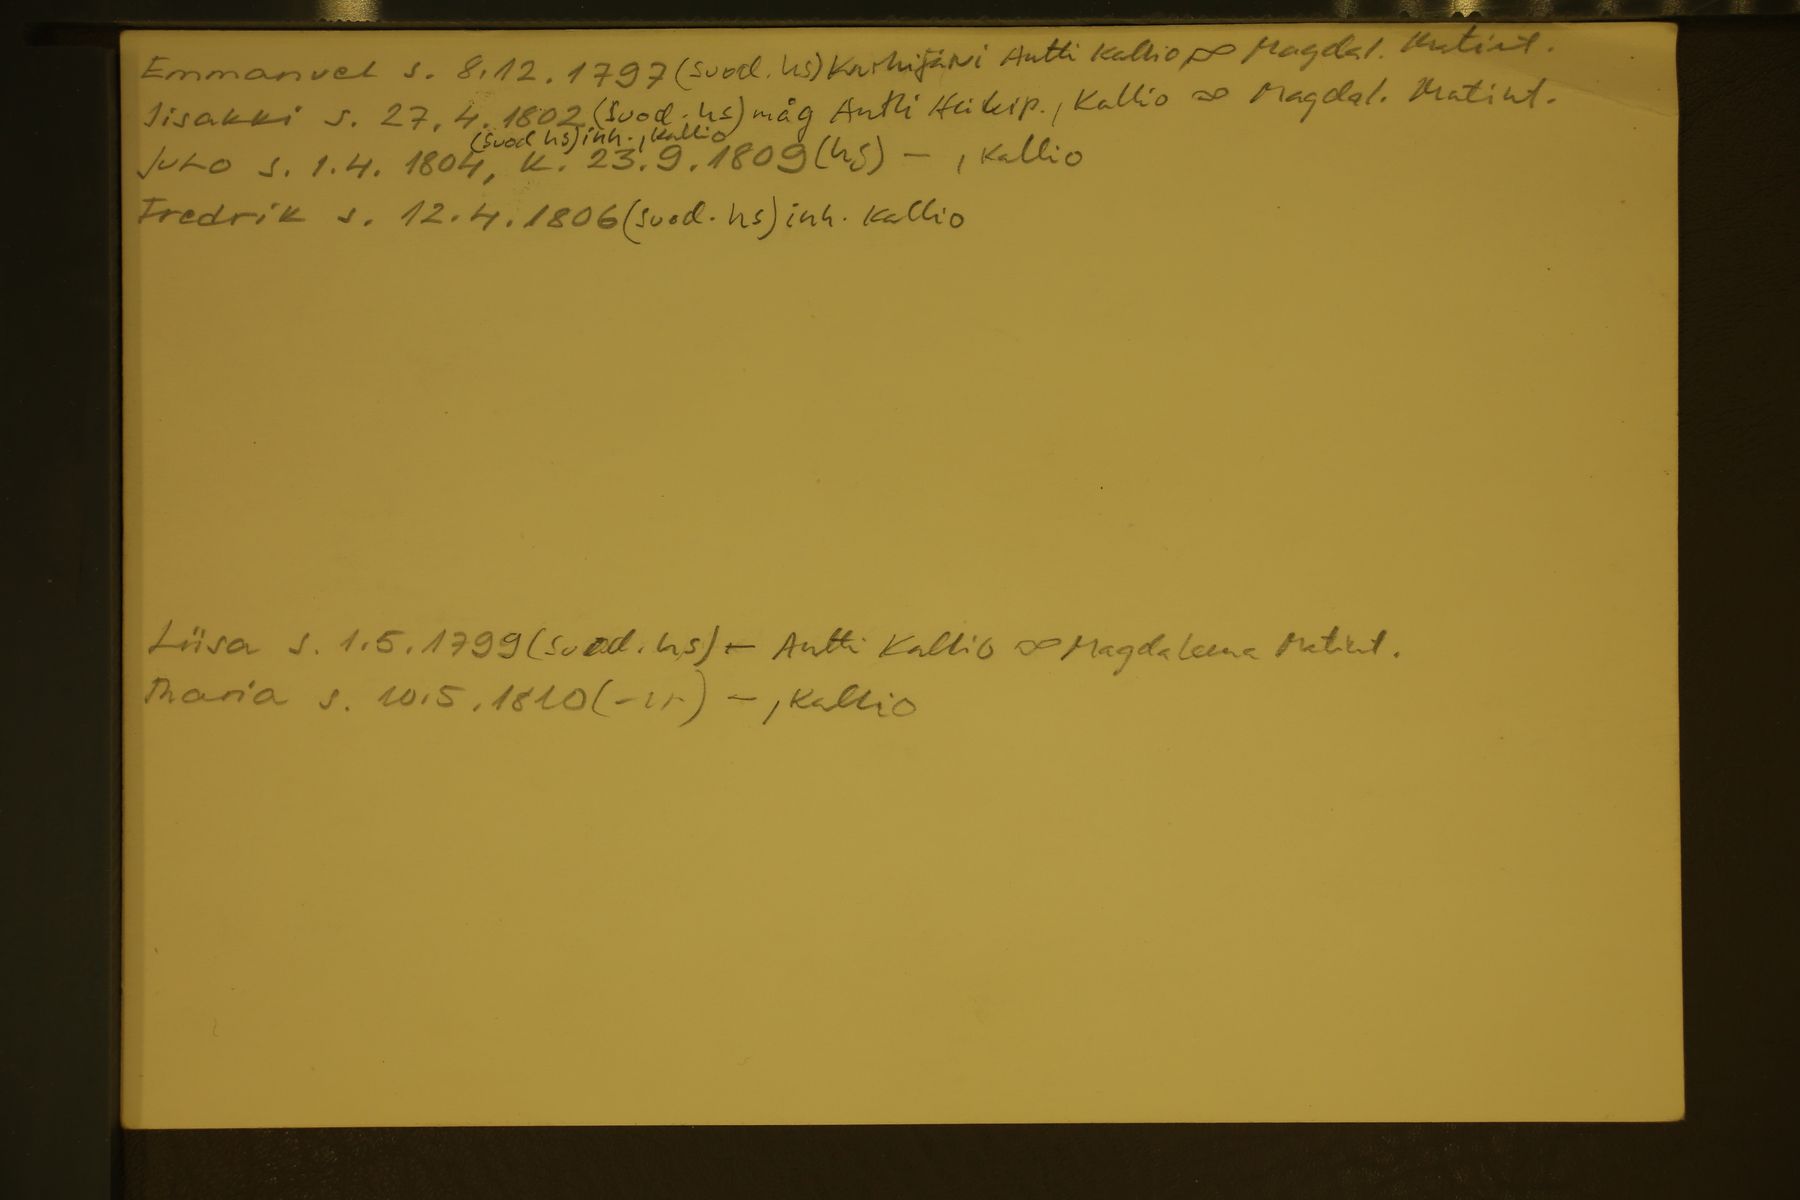 Emmanuel s. 8.12.1797 (Suod. hs) Karhijärvi Antti Kallio ∞ Magdal. Matint.
Iisakki s. 27.4.1802 (Suod. hs) måg Antti Heikip., Kallio ∞ Magdal. Matint.
(Suod hs) inh., Kallio
Juho s. 1.4.1804, k. 23.9.1809 (hs) – , Kallio
Fredrik s. 12.4.1806 (Suod. hs) inh. Kallio
Liisa s. 1.5.1799 (Suod. hs) – Antti Kallio ∞ Magdaleena Matint.
Maria s. 10.5.1810 (–"–) – , Kallio